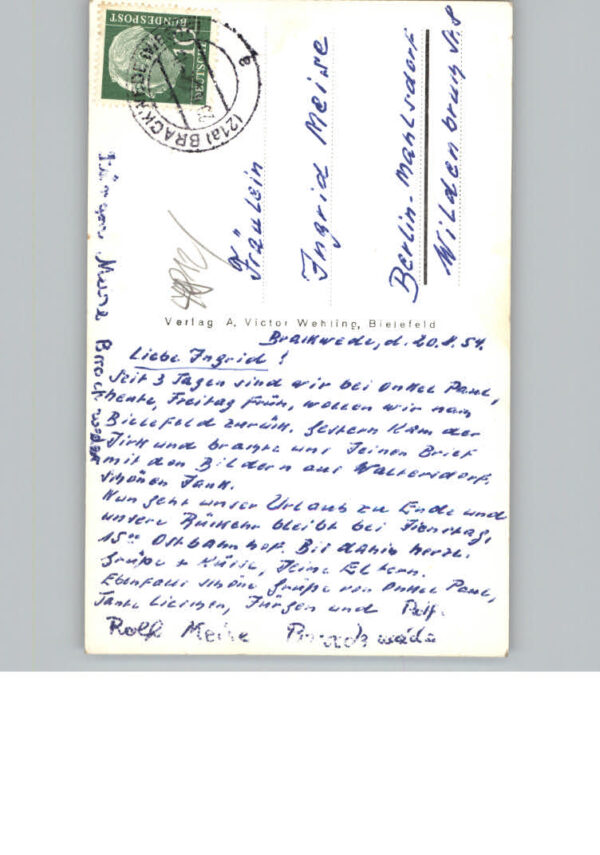 DEUTSCHE
BUNDESPOST
10
(21a) BRACKWEDE
Fräulein
Ingrid Meise
Berlin-Mahlsdorf
Wildenbruch Str 8
Verlag A. Victor Wehling, Bielefeld
Brackwede, d. 20.8.54.
Liebe Ingrid!
Seit 3 Tagen sind wir bei Onkel Paul,
heute, Freitag früh, wollen wir nach
Bielefeld zurück. Gestern kam der
Dirk und brachte uns Deinen Brief
mit den Bildern aus Waltersdorf.
Schönen Dank.
Nun geht unser Urlaub zu Ende und
unsere Rückkehr bleibt bei Dienstag,
15°° Ostbahnhof. Bis dahin herzl.
Grüße + Küsse, Deine Eltern.
Ebenfalls schöne Grüße von Onkel Paul,
Tante Lieschen, Jürgen und Rolf.
Rolf Meise Brackwede
Jürgen Meise Brackwede